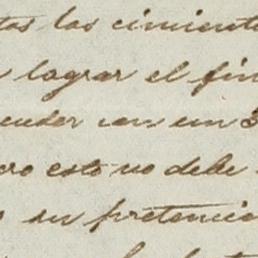 tas los cimiento
lograr el fin
ender con un
ero esto no debe
su pretencio